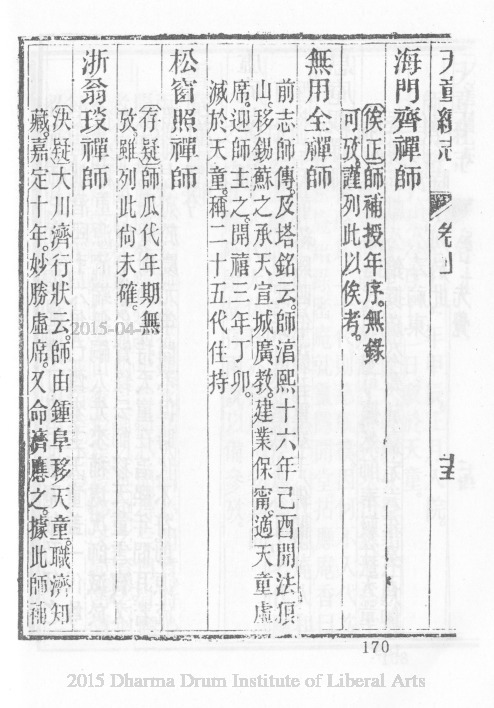 天童續志 卷上
海門齊禪師
俟正師補授年序。無錄
可攷。謹列此以俟考。
無用全禪師
前志師傳。及塔銘云。師淳熙十六年己酉開法狼
山。移錫蘇之承天宣城廣教。建業保甯。適天童虛
席。迎師主之。開禧三年丁卯。
滅於天童。稱二十五代住持
松窗照禪師
存疑師瓜代年期無
攷。雖列此尙未確。
浙翁琰禪師
決疑大川濟行狀云。師由鍾阜移天童。職濟知
藏。嘉定十年。妙勝虛席。又命濟應之。據此師補
2015-04-
170
2015 Dharma Drum Institute of Liberal Arts